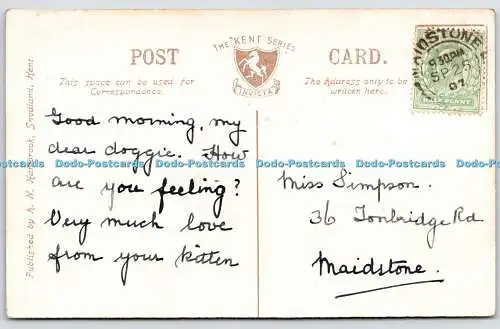 POST
THE KENT SERIES
INVICTA
CARD.
This space can be used for
Correspondence.
The Address only to be
written here.
MAIDSTONE
9.30PM
SP 25
07
HALFPENNY
Published by A. N. Hambrook, Snodland, Kent.
Good morning, my
dear doggie. How
are you feeling?
Very much love
from your kitten
Miss Simpson.
36 Tonbridge Rd
Maidstone.
Dodo-Postcards Dodo-Postcards Dodo-Postcards Dodo-Postcards Dodo-Postcards Dodo-Postcards